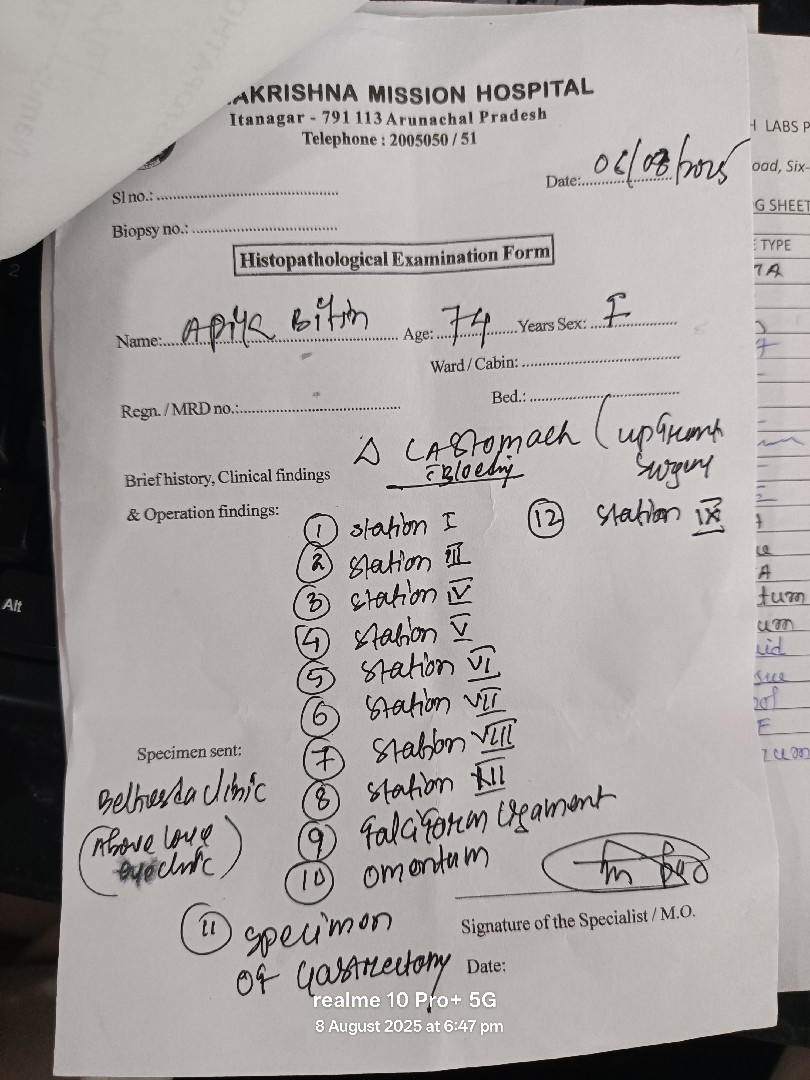 AKRISHNA MISSION HOSPITAL
Itanagar - 791 113 Arunachal Pradesh
Telephone : 2005050 / 51
Date: 06/08/2025
Sl no.:
Biopsy no.:
Histopathological Examination Form
Name: Bitin Age: 74 Years Sex: F
Ward / Cabin:
Regn. / MRD no.: Bed.:
Δ CA Stomach (upfront
Brief history, Clinical findings Surgery
& Operation findings:
① Station I ⑫ Station IX
② Station III
③ Station IV
④ Station V
⑤ Station VI
⑥ Station VII
⑦ Station VIII
Specimen sent:
⑧ Station XII
clinic
⑨ Falciform ligament
(Above
clinic)
⑩ omentum
Signature of the Specialist / M.O.
⑪ specimen
of gastrectomy
Date:
realme 10 Pro+ 5G
8 August 2025 at 6:47 pm
H LABS P
oad, Six-
G SHEET
TYPE
Alt
2